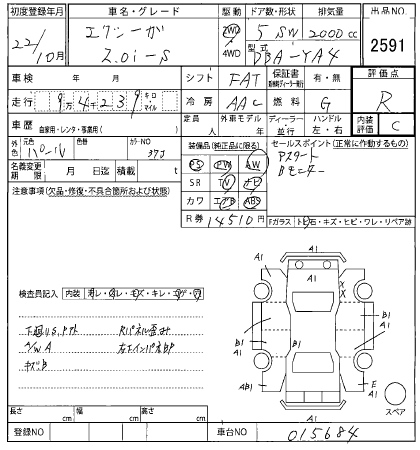 初度登録年月 車名・グレード 駆動 ドア数・形状 排気量 出品NO
22/10月 エクシーガ 2WD 5 SW 2000cc 2591
2.0i-S 4WD 型式 DBA-YA4
車検 年 月 シフト FAT 保証書 有・無 評価点
走行 9万4239 キロ・マイル 冷房 AAC 燃料 G R
車歴 自家用・レンタ・事業用( ) 定員 人 外車モデル 年 ディーラー・並行 ハンドル 左・右 内装評価 C
外色 元色 パール 色替 カラーNO 37J 装備品(純正品に限る) セールスポイント(正常に作動するもの)
名義変更期限 月 日迄 積載 t PS PW AW アスタート
注意事項(欠品・修復・不具合箇所および状態) SR TV ナビ Bモニター
カワ エアB ABS
R券 14510円 Fガラス トビ石・キズ・ヒビ・ワレ・リペア跡
A1
A1 A1
A1
検査員記入 内装 X X
下廻りUS,サクト Rパネル歪み B1 B1 B1
A1 A1
A/W A 左右インパネBP
キズB
AB1 E
A1
A1
スペア
長さ cm 幅 cm 高さ cm
登録NO 車台NO 015684